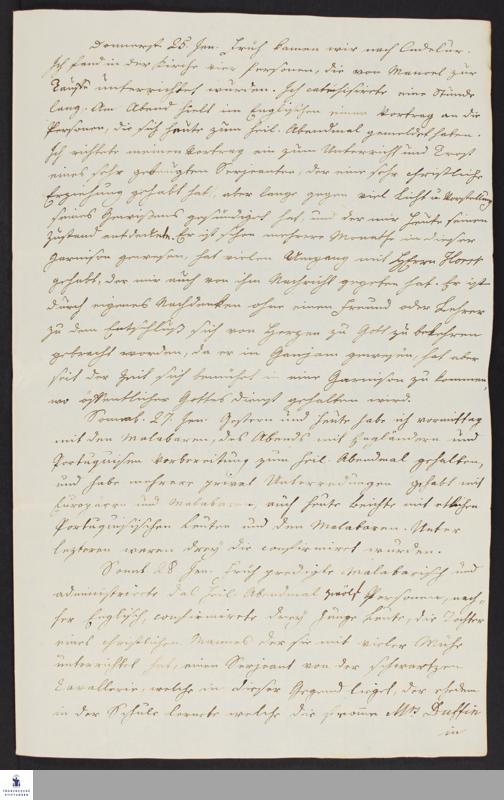 Donnerst. 25 Jan. Früh kamen wir nach Cudelur.
Ich fand in der Kirche vier Personen, die von Manuel zur
Tauffe unterrichtet wurden. Ich catechisirete eine Stunde
lang. Am Abend hielt im Englischen einen Vortrag an die
Personen, die sich heute zum heil. Abendmal gemeldet haben.
Ich richtete meinen Vortrag ein zum Unterricht und Trost
eines sehr gebeugten Serjeanten, der eine sehr christliche
Erziehung gehabt hat, aber lange gegen viel Licht u. Vorstellung
seines Gewissens gesündiget hat, und der mir heute seinen
Zustand entdeckete. Er ist schon mehrere Monathe in dieser
Garnison gewesen, hat vielen Umgang mit HErrn Horst
gehabt, der mir auch von ihm Nachricht gegeben hat. Er ist
durch eigenes Nachdenken ohne einen Freund oder Lehrer
zu dem Entschluß sich von Herzen zu Gott zu bekehren
gebracht worden, da er in Ganjam gewesen, hat aber
seit der Zeit sich bemühet in eine Garnison zu kommen,
wo öffentlicher Gottesdienst gehalten wird.
Sonnab. 27 Jan. Gestern und heute habe ich vormittag
mit den Malabaren, des Abends mit Engländern und
Portuguisen Vorbereitung zum heil. Abendmal gehalten,
und habe mehrere privat Unterredungen gehabt mit
Europaern und Malabaren, auch heute Beichte mit etlichen
Portuguisischen Leuten und den Malabaren. Unter
lezteren waren drey die confirmiret wurden.
Sont. 28 Jan. Früh predigte Malabarisch und
administrirte das heil. Abendmal zwölf Personen, nach-
her Englisch, confirmirete drey junge Leute, die Töchter
eines christlichen Mannes der sie mit vieler Mühe
unterrichtet hat, einen Serjeant von der schwartzen
Cavallerie, welche in dieser Gegend lieget, der ehedem
in der Schule lernete welche die fromme Mrs Duffin
in
FRANCKESCHE
STIFTUNGEN